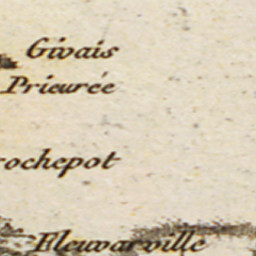 Givais
Prieurée
rochepot
Fleuvarville